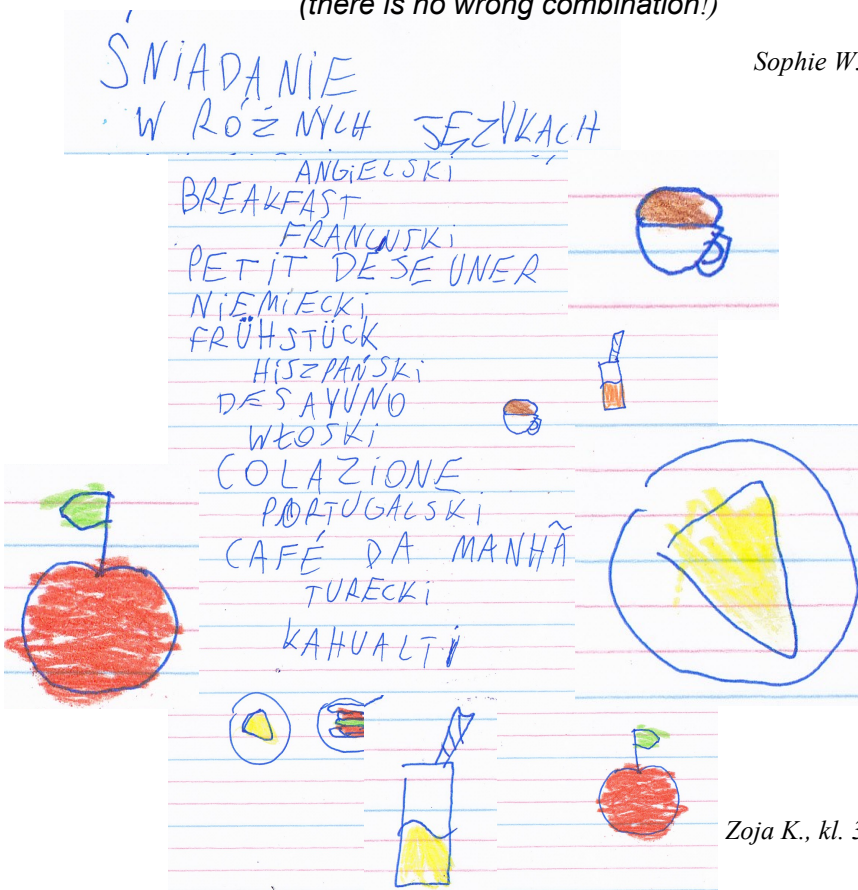 (there is no wrong combination!)
Sophie W.
ŚNIADANIE
W RÓŻNYCH JĘZYKACH
ANGIELSKI
BREAKFAST
FRANCUSKI
PETIT DESEUNER
NIEMIECKI
FRÜHSTÜCK
HISZPAŃSKI
DESAYUNO
WŁOSKI
COLAZIONE
PORTUGALSKI
CAFÉ DA MANHÃ
TURECKI
KAHUALTI
Zoja K., kl. 3